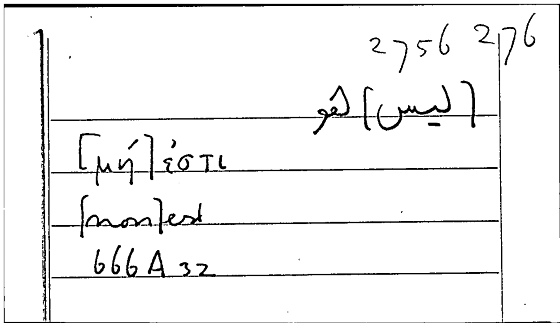 2756 276
[ليس] هو
[μή] ἐστι
[non] est
666A 32